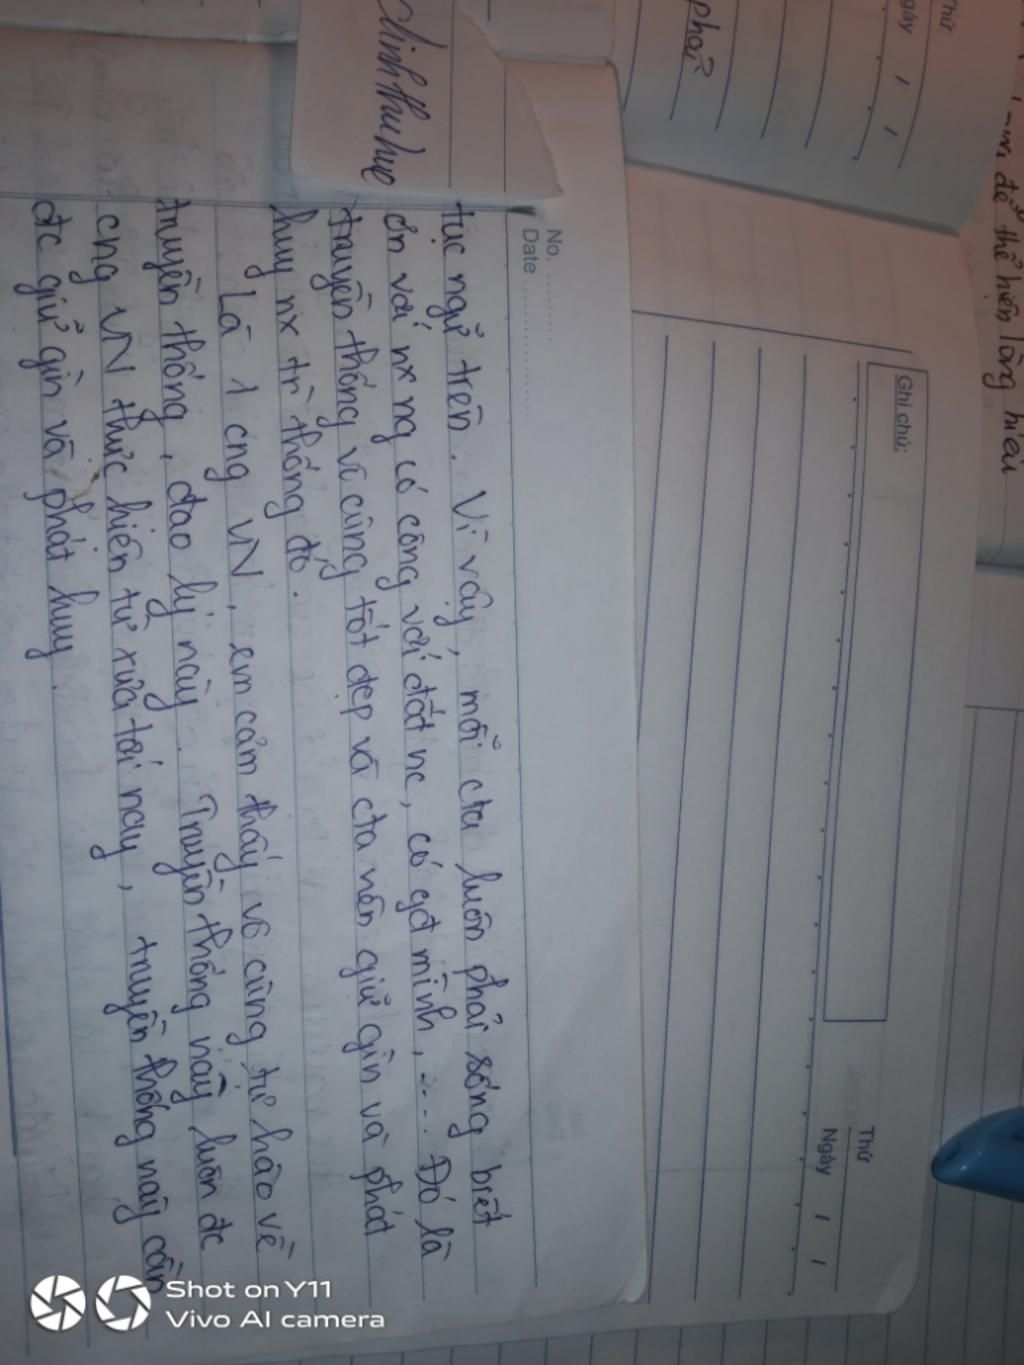 làm để thể hiện lòng hiếu
Thứ
Ngày / /
phải
Ghi chú:
Thứ
Ngày / /
No. ..........
Date ....................
tục ngữ trên. Vì vậy, mỗi cta luôn phải sống biết
ơn với nx ng có công với đất nc, có gđ mình, .... Đó là
truyền thống vô cùng tốt đẹp và cta nên giữ gìn và phát
huy nx tr` thống đó.
Là 1 cng VN, em cảm thấy vô cùng tự hào về
truyền thống, đạo lý này. Truyền thống này luôn đc
cng VN thực hiện từ xưa tới nay, truyền thống này cần
đc giữ gìn và phát huy.
Shot on Y11
Vivo AI camera